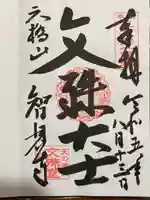 奉拝
令和五年
八月十三日
文殊大士
天橋山
智恩寺